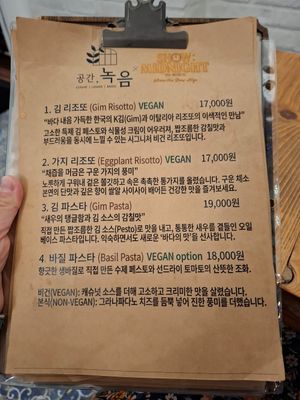 공간, 녹음
×
SHOW: MIDNIGHT
1. 김 리조또 (Gim Risotto) VEGAN 17,000원
"바다 내음 가득한 한국의 K김(Gim)과 이탈리아 리조또의 이색적인 만남"
고소한 특제 김 페스토와 식물성 크림이 어우러져, 짭조름한 감칠맛과
부드러움을 동시에 느낄 수 있는 시그니처 비건 리조또입니다.
2. 가지 리조또 (Eggplant Risotto) VEGAN 17,000원
"채즙을 머금은 구운 가지의 풍미"
노릇하게 구워내 겉은 쫄깃하고 속은 촉촉한 통가지를 올렸습니다. 구운 채소
본연의 단맛과 깊은 향이 쌀알 사이사이 배어든 건강한 맛을 즐겨보세요.
3. 김 파스타 (Gim Pasta) 19,000원
"새우의 탱글함과 김 소스의 감칠맛"
직접 만든 짭조름한 김 소스(Pesto)로 맛을 내고, 통통한 새우를 곁들인 오일
베이스 파스타입니다. 익숙하면서도 새로운 '바다의 맛'을 선사합니다.
4. 바질 파스타 (Basil Pasta) VEGAN option 18,000원
향긋한 생바질로 직접 만든 수제 페스토와 선드라이 토마토의 산뜻한 조화.
비건(VEGAN): 캐슈넛 소스를 더해 고소하고 크리미한 맛을 살렸습니다.
본식(NON-VEGAN): 그라나파다노 치즈를 듬뿍 넣어 진한 풍미를 더했습니다.